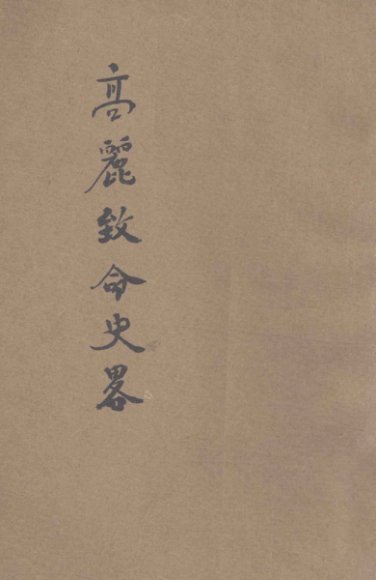 高麗致命史畧